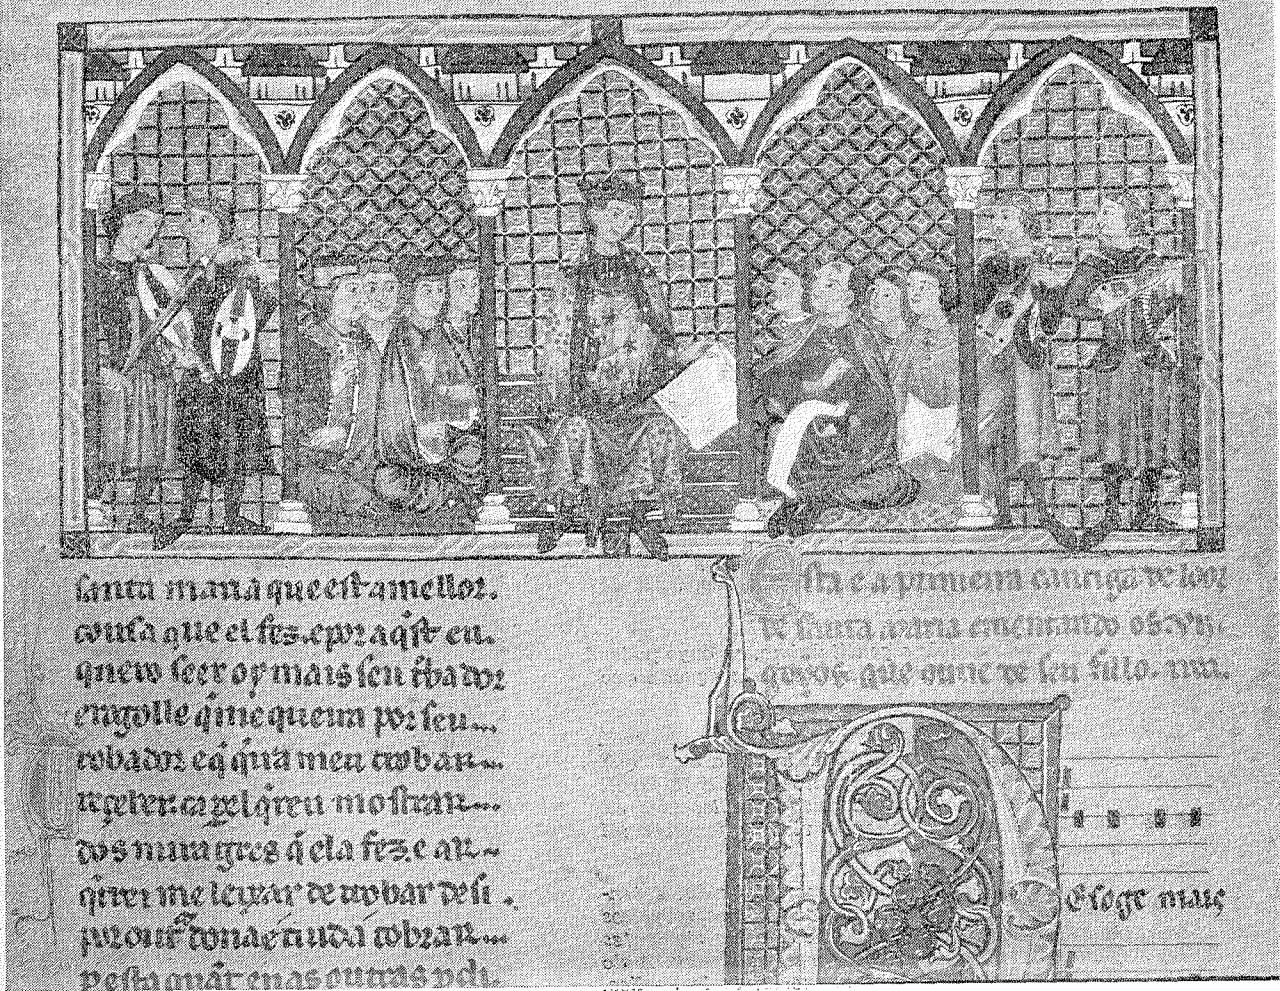 santa maria que est a mellor.
cousa que el fez. e por aqst eu.
quero seer oy mais seu trobador
e rogo lle q me queira por seu
trobador e q queira meu trobar
reçeber. ca per el qreu mostrar
dos miragres q ela fez. e ar
querrei me leixar de trobar des i
por outra dona e cuid a cobrar
per esta quant enas outras perdi.
Esta e a primeira cantiga de loor
de santa maria ementando os .vii.
goyos que ouue de seu fillo.
E soge mais